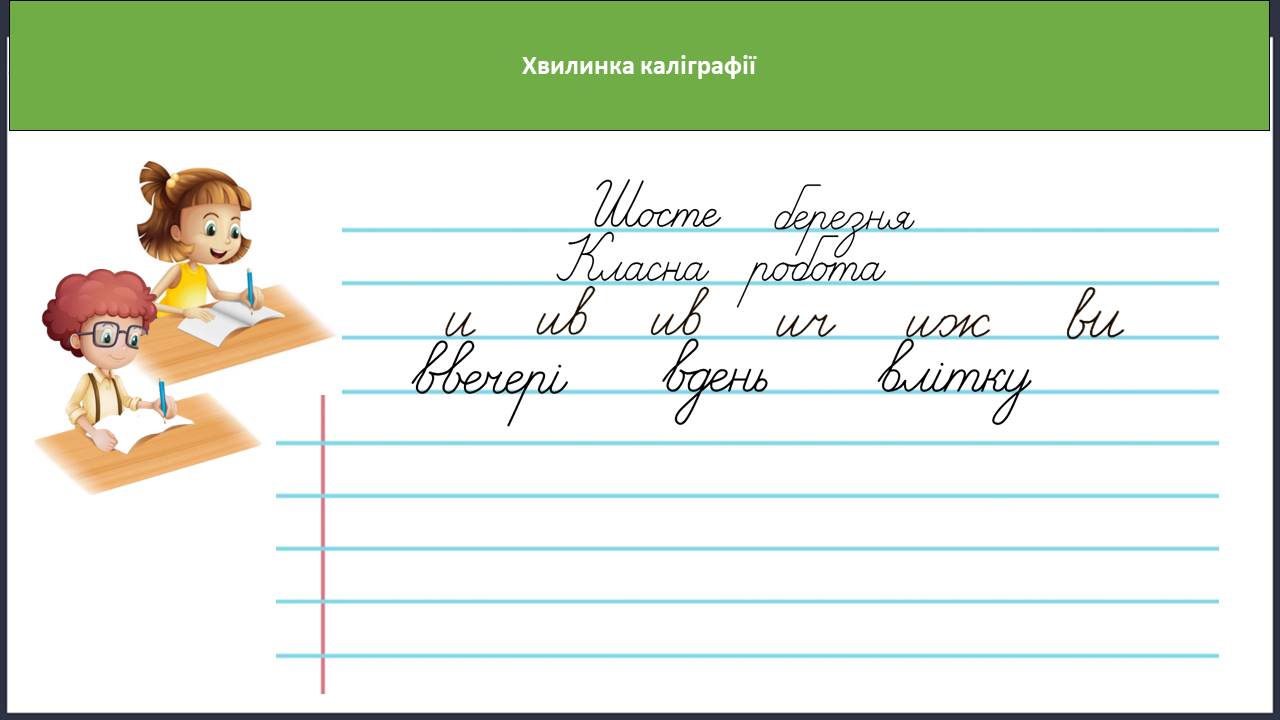 Хвилинка каліграфії
Шосте березня
Класна робота
и ив ив ич иж ви
ввечері вдень влітку